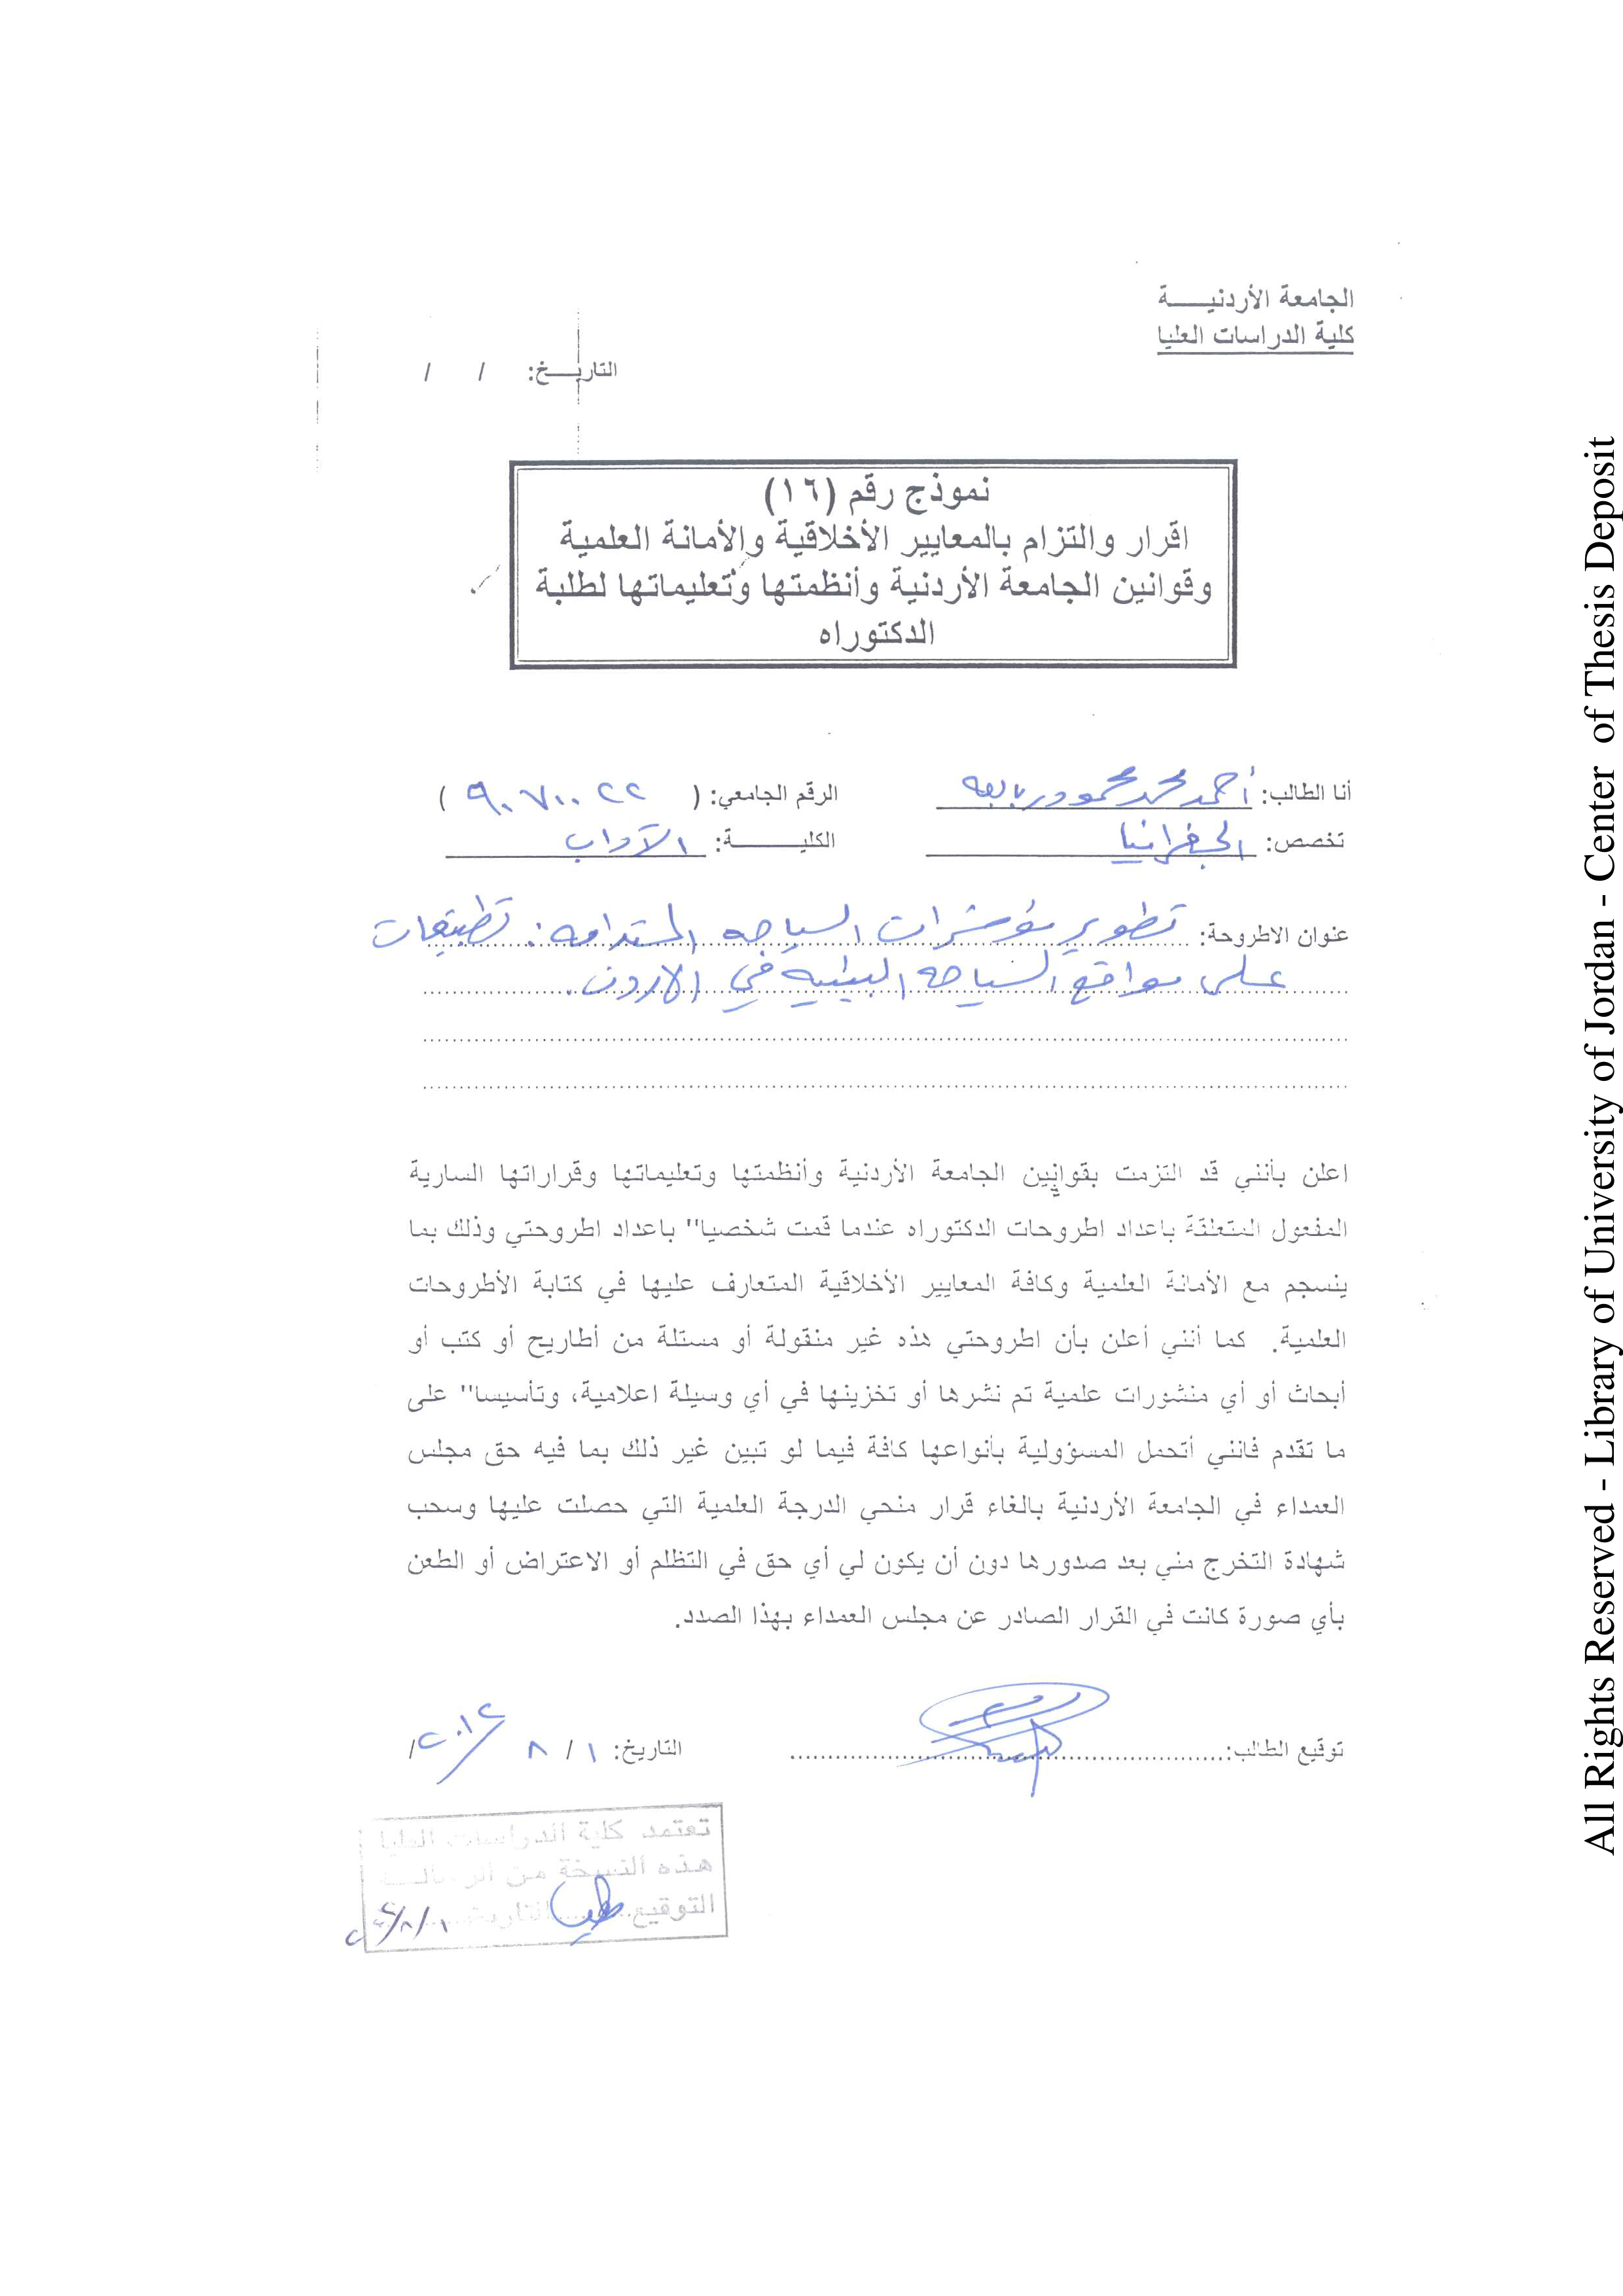 الجامعة الأردنيــــة
كلية الدراسات العليا
التاريـــخ: / /
نموذج رقم (١٦)
اقرار والتزام بالمعايير الأخلاقية والأمانة العلمية
وقوانين الجامعة الأردنية وأنظمتها وتعليماتها لطلبة
الدكتوراه
أنا الطالب: أحمد محمد محمود ربابعه الرقم الجامعي: ( ٩٠٧٠٠٢٢ )
تخصص: الجغرافيا الكليـــــــة: الآداب
عنوان الاطروحة: تطوير مؤشرات السياحه المستدامه: تطبيقات
على مواقع السياحه البيئيه في الاردن.
اعلن بأنني قد التزمت بقوانين الجامعة الأردنية وأنظمتها وتعليماتها وقراراتها السارية
المفعول المتعلقة باعداد اطروحات الدكتوراه عندما قمت شخصيا" باعداد اطروحتي وذلك بما
ينسجم مع الأمانة العلمية وكافة المعايير الأخلاقية المتعارف عليها في كتابة الأطروحات
العلمية. كما أنني أعلن بأن اطروحتي هذه غير منقولة أو مستلة من أطاريح أو كتب أو
أبحاث أو أي منشورات علمية تم نشرها أو تخزينها في أي وسيلة اعلامية، وتأسيسا" على
ما تقدم فانني أتحمل المسؤولية بأنواعها كافة فيما لو تبين غير ذلك بما فيه حق مجلس
العمداء في الجامعة الأردنية بالغاء قرار منحي الدرجة العلمية التي حصلت عليها وسحب
شهادة التخرج مني بعد صدورها دون أن يكون لي أي حق في التظلم أو الاعتراض أو الطعن
بأي صورة كانت في القرار الصادر عن مجلس العمداء بهذا الصدد.
توقيع الطالب: التاريخ: ١ / ٨ / ٢٠١٢
تعتمد كلية الدراسات العليا
هذه النسخة من الرسالــة
التوقيع التاريخ
All Rights Reserved - Library of University of Jordan - Center of Thesis Deposit